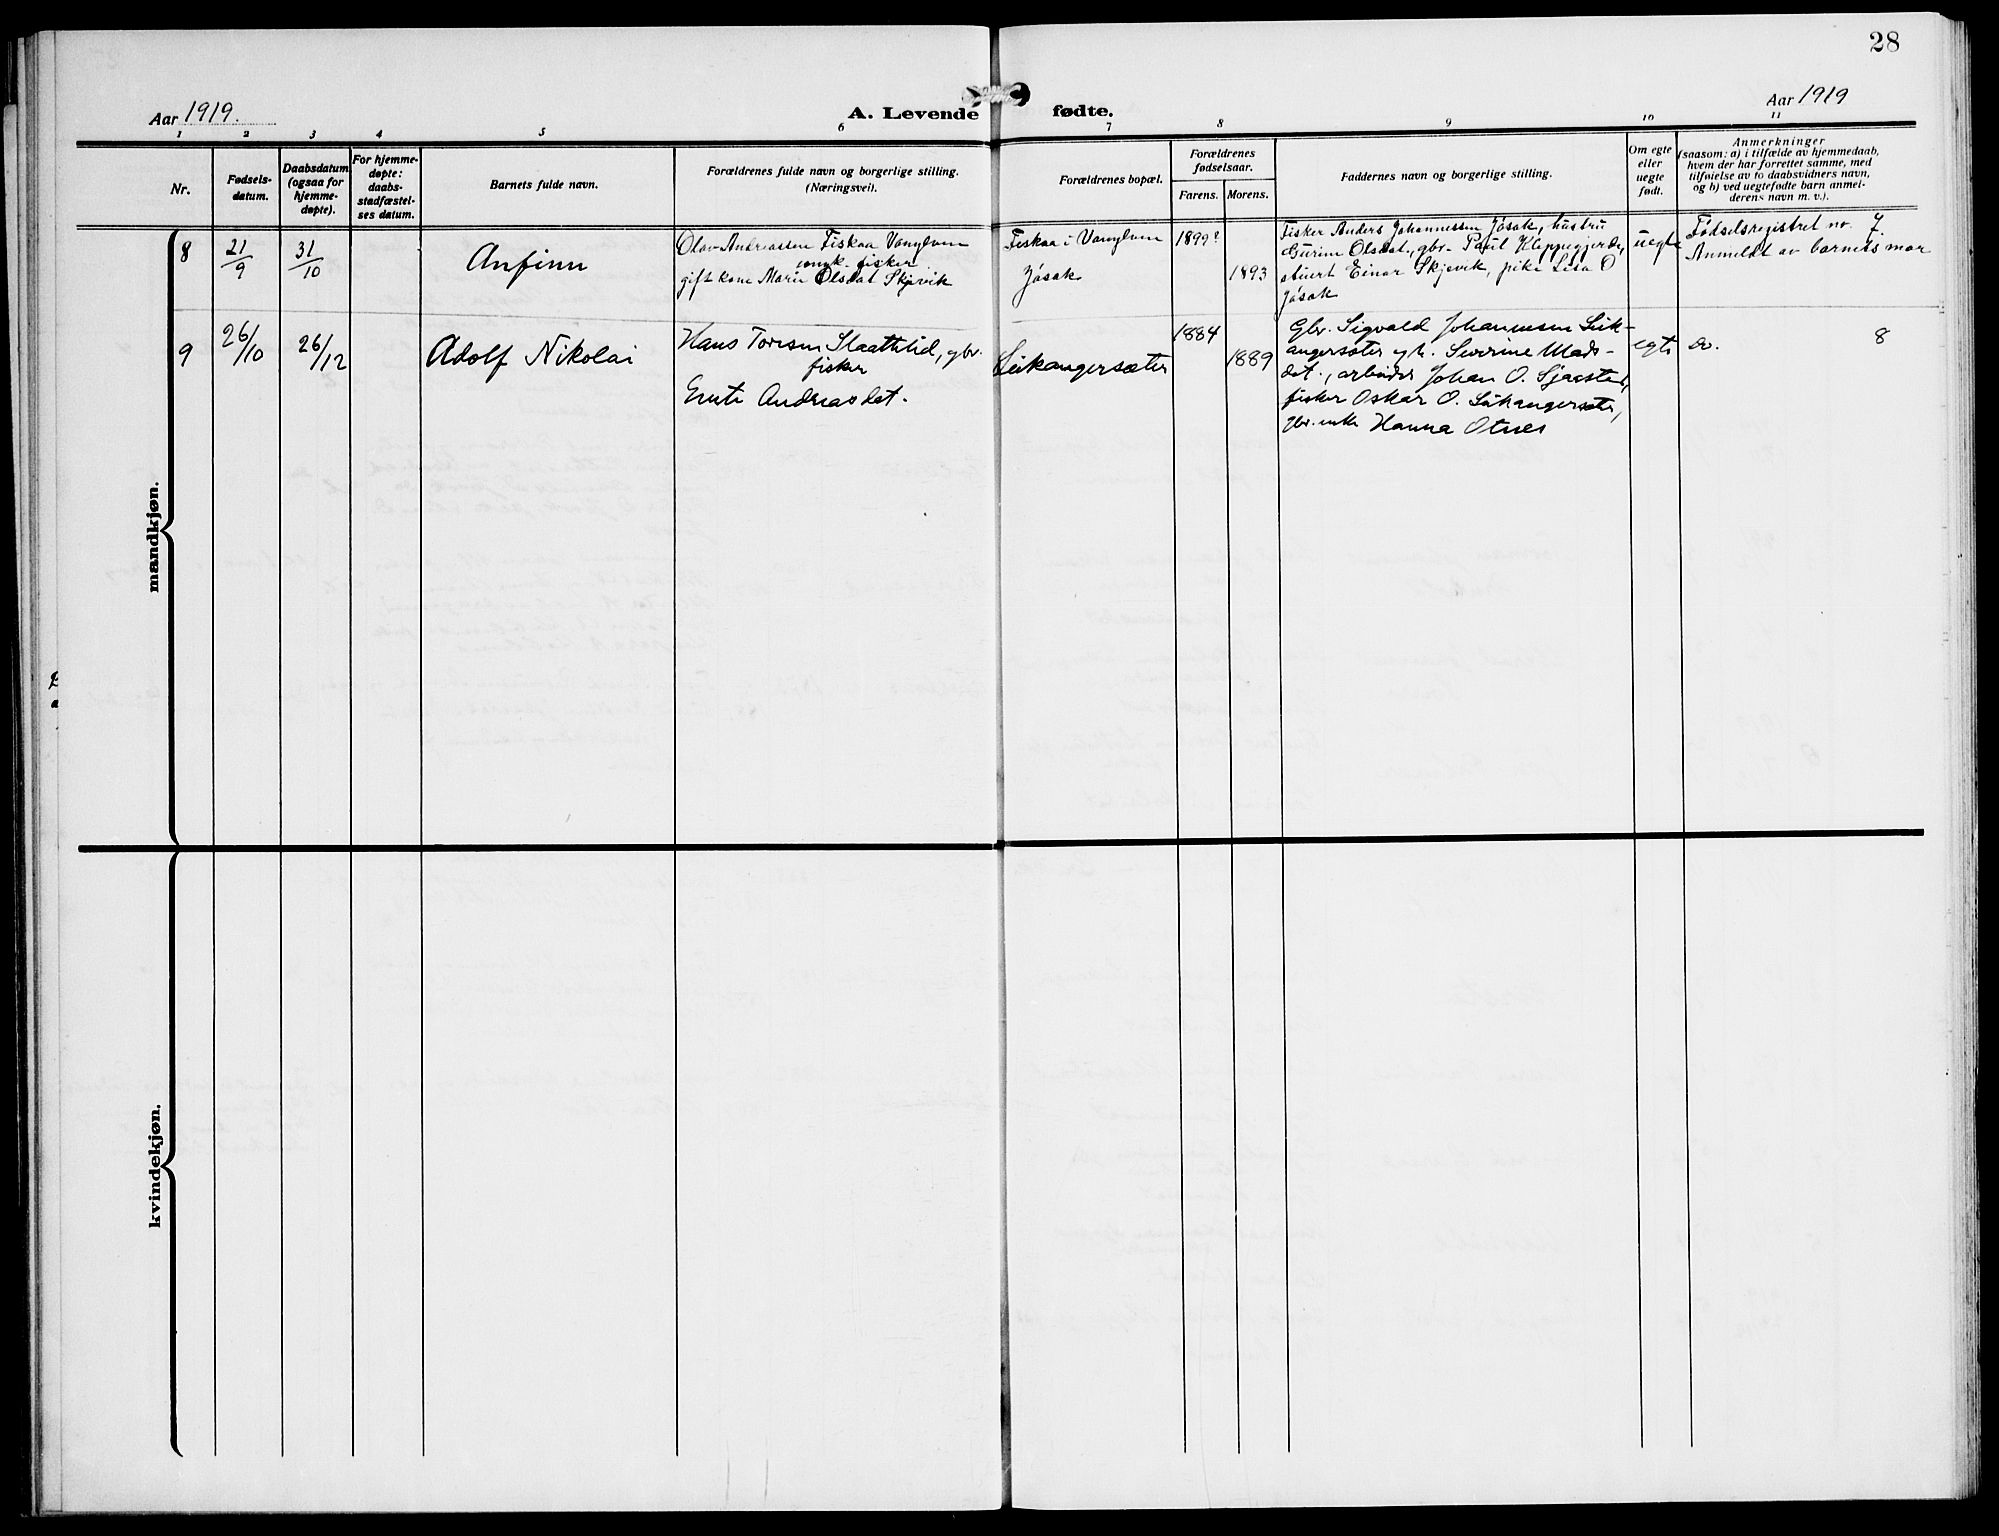 28
Aar 1919.
A. Levende fødte.
Aar 1919
1 2 3 4 5 6 7 8 9 10 11
Nr.
Fødsels-
datum.
Daabsdatum
(ogsaa for
hjemme-
døpte).
For hjemme-
døpte:
daabs-
stadfæstel-
ses datum.
Barnets fulde navn.
Forældrenes fulde navn og borgerlige stilling.
(Næringsvei).
Forældrenes bopæl.
Forældrenes
fødselsaar.
Farens. Morens.
Faddernes navn og borgerlige stilling.
Om egte
eller
uegte
født.
Anmerkninger
(saasom: a) i tilfælde av hjemmedaab,
hvem der har forrettet samme, med
tilføielse av to daabsvidners navn,
og b) ved uegtefødte barn anmel-
derens navn m. v.).
mandkjøn.
8
21/9
31/10
Anfinn
Olav Andreassen Fiskaa Vanylven
ungk. fisker
gift kone Marie Olsdat Skjevik
Fiskaa i Vanylven
Jøsok
1899?
1893
Fisker Anders Johannessen Jøsak, hustru
Gurine Olsdat, gbr. Paul Kleppegjerde,
stuert Einar Skjevik, pike Lisa O
Jøsak
uegte
Fødselsregistret no. 7.
Anmeldt av barnets mor
9
26/10
26/12
Adolf Nikolai
Hans Toresen Slaattelid, gbr.
fisker
Ente Andreasdat.
Leikangersæter
1884
1889
Gbr. Sigvald Johannesen Leik-
angersæter og h. Severine Mads-
dat., arbeider Johan O. Sjaastad,
fisker Oskar O. Leikangersæter,
gbr. enke Hanna Otnes
egte
do. 8
kvindekjøn.